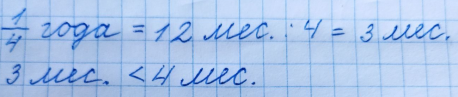 1/4 года = 12 мес. : 4 = 3 мес.
3 мес. < 4 мес.